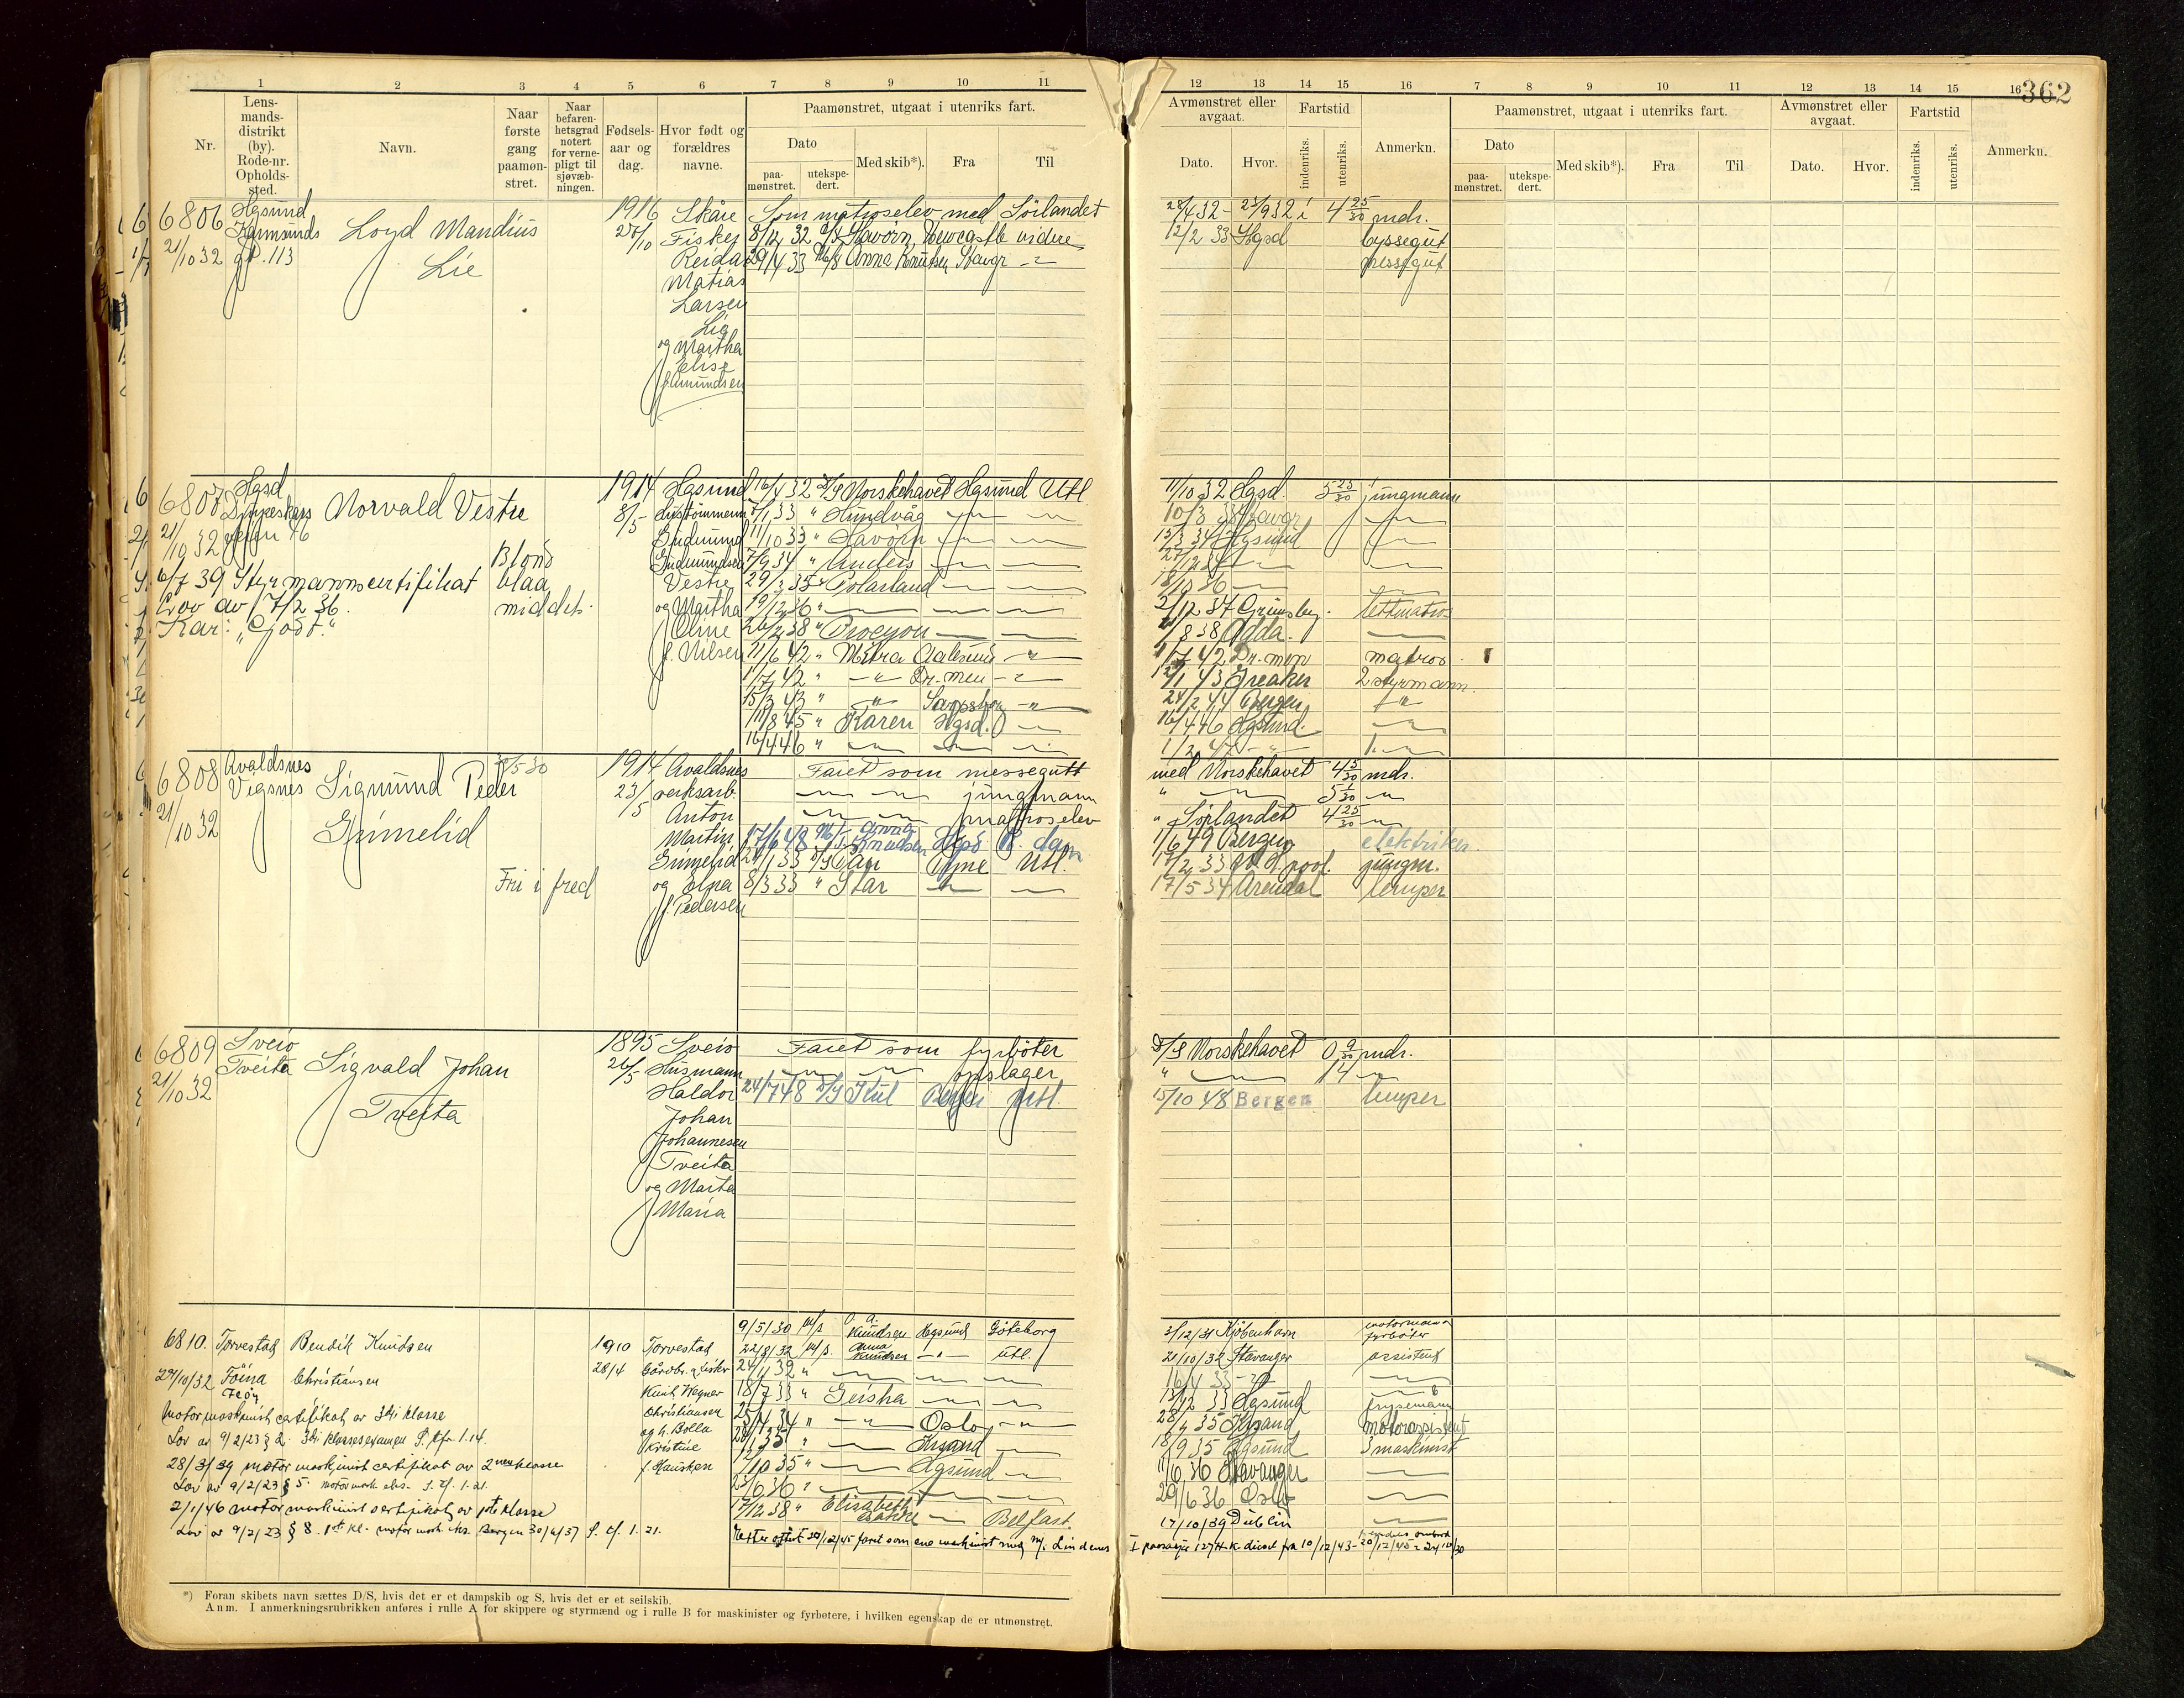 362
1 2 3 4 5 6 7 8 9 10 11
12 13 14 15 16 7 8 9 10 11 12 13 14 15 16
Nr.
Lens-
mands-
distrikt
(by).
Rode-nr.
Opholds-
sted.
Navn.
Naar
første
gang
paamøn-
stret.
Naar
befaren-
hetsgrad
notert
for verne-
pligt til
sjøvæb-
ningen.
Fødsels-
aar og
dag.
Hvor født og
forældres
navne.
Paamønstret, utgaat i utenriks fart.
Dato
paa-
mønstret.
utekspe-
dert.
Med skib*).
Fra
Til
Avmønstret eller
avgaat.
Dato.
Hvor.
Fartstid
indenriks.
utenriks.
Anmerkn.
Paamønstret, utgaat i utenriks fart.
Dato
paa-
mønstret.
utekspe-
dert.
Med skib*).
Fra
Til
Avmønstret eller
avgaat.
Dato.
Hvor.
Fartstid
indenriks.
utenriks.
Anmerkn.
6806
21/10 32
Hgsund
Karmsunds
gt. 113
Loyd Mandius
Lie
1916
27/10
Skåre
Fisker
Reidar
Matias
Larsen
Lie
og Martha
Elise
f. Amundsen
Som matroselev med Sörlandet 28/4 32 - 23/9 32 i 4 25/30 mdr.
8/12 32 D/S Havörn, Newcastle videre 12/2 33 Hgsd byssegut
29/4 33 M/S Anna Knudsen Stavgr -"- messegut
6807
21/10 32
Hgsd
Norvald Vestre
Blond
blaa
middels.
6/7 39 Styrmannscertifikat
Lov av 17/2 36.
Kar: "Godt."
1914
8/5
Hgsund
Gudmund
Gudmundsen
Vestre
og Martha
Oline
f. Nilsen
16/4 32 D/S Norskehavet Hgsund Utl. 11/10 32 Hgsd. 5 25/30 jungmann
7/1 33 " Hundvåg 10/3 33 Stavgr
11/10 33 " Havörn 13/3 34 Hgsund
7/9 34 " Anders 27/12 34
29/3 35 " Polarland 18/10 36
19/12 36 " 2/12 37 Grimsby. lettmatros
26/2 38 " Procyon /8 38 Odda.
11/6 42 " Mitra Aalesund -"- 1/7 42 Dr.men matros
1/7 42 " -"- Dr.men -"- /1 43 Greaker 2 styrmann.
15/3 43 " -"- Sarpsborg -"- 24/2 44 Bergen -"-
11/8 45 " Karen Hgsd. 16/4 46 Hgsund.
16/4 46 " 1/2 47 -"- 1.
6808
21/10 32
Avaldsnes
Vigsnes
Sigmund Peder
Grimelid
/5 30
Fri i fred
1914
23/5
Avaldsnes
verksarb.
Anton
Martin
Grimelid
og Elna
f. Pedersen
Faret som messegutt med Norskehavet 4 5/30 mdr.
jungmann " 5 1/30
matroselev " Sörlandet 4 25/30
17/6 48 M/S Anna Knudsen Hgsd R.dam 1/6 49 Bergen elektriker
24/1 33 D/S Varr Tyne Utl. 17/2 33 pool. jungm.
8/3 33 " Star 17/5 34 Arendal lemper
6809
21/10 32
Sveio
Tveita
Sigvald Johan
Tveita
1895
26/5
Sveio
Husmann
Haldor
Johan
Johannesen
Tveita
og Marta
Maria
Faret som fyrböter D/S Norskehavet 0 9/30 mdr.
opslager " 14
24/7 48 D/S Kul Bergen Utl. 15/10 48 Bergen lemper
6810.
29/10/32
Torvestad
Föina
Bendik Knudsen
Christiansen
Motormaskinistcertifikat av 3dje klasse
Lov av 9/2/23 § 2. 3dje klasseseksamen
28/3/39 motormaskinistcertifikat av 2nen klasse
Lov av 9/2/23 § 5.
2/1/46 motormaskinistcertifikat av 1ste klasse
Lov av 9/2/23 § 8. 1ste kl. motor mask. eks. Bergen 30/6/37
1910
28/4
Torvestad
Gårdbr. og fisker
Knut Wegner
Christiansen
og h. Bolla
Kristine
f. Hausken
9/5/30 M/S O. A. Knudsen Hgsund Göteborg 3/12/31 Köbenhavn motormann fyrböter
22/8/32 M/S. Anna Knudsen -"- Utl. 21/10/32 Stavanger assistent
24/11 32 " 16/4 33
18/7 33 " Geisha 13/12 33 Hgsund frysemann
34 " -"- Oslo -"- 28/4 35 Krsand motorassistent
35 " Krsand 18/9 35 Hgsund 3 maskinist
/10 35 " Hgsund 11/6 36 Stavanger
23/6 36 " 29/6 36 Oslo
17/12 38 " Elisabeth Bakke Belfast. 17/10/39 Dublin
*) Foran skibets navn sættes D/S, hvis det er et dampskib og S, hvis det er et seilskib.
Anm. I anmerkningsrubrikken anføres i rulle A for skippere og styrmænd og i rulle B for maskinister og fyrbøtere, i hvilken egenskap de er utmønstret.